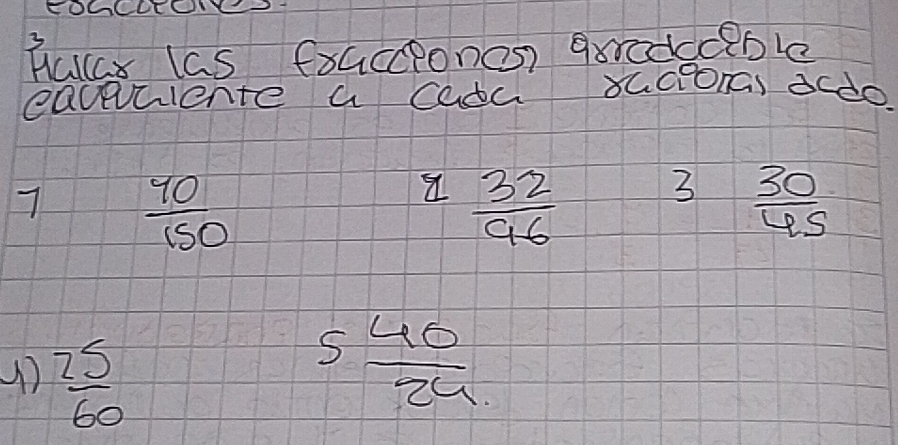 3
Hallar las fracciones irreducible
equivalente a cada racional dado.
1 90/150 2 32/96 3 30/45
4) 25/60 5 40/24.